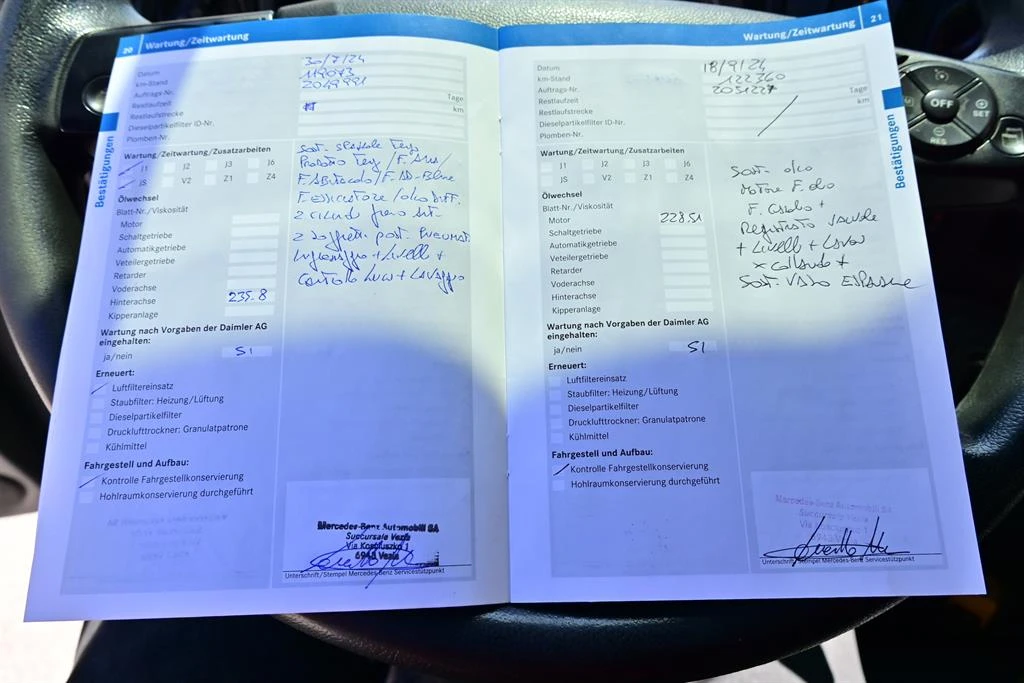 20 Wartung/Zeitwartung
Datum 30/7/24
km-Stand 119093
Auftrags-Nr. 2049991
Restlaufzeit Tage
Restlaufstrecke km
Dieselpartikelfilter ID-Nr.
Plomben-Nr.
Bestätigungen
Wartung/Zeitwartung/Zusatzarbeiten
J1 J2 J3 J6
JS V2 Z1 Z4
Ölwechsel
Blatt-Nr./Viskosität
Motor
Schaltgetriebe
Automatikgetriebe
Veteilergetriebe
Retarder
Voderachse
Hinterachse 235.8
Kipperanlage
Wartung nach Vorgaben der Daimler AG
eingehalten:
ja/nein SI
Erneuert:
Luftfiltereinsatz
Staubfilter: Heizung/Lüftung
Dieselpartikelfilter
Drucklufttrockner: Granulatpatrone
Kühlmittel
Fahrgestell und Aufbau:
Kontrolle Fahrgestellkonservierung
Hohlraumkonservierung durchgeführt
Sost. spazzole Terg
Prodotto Terg / F. Aria /
F. Abitacolo / F. AD-Blue
F. Essicatore / olio diff.
2 post. Pneumat.
Ingrassaggio + Livelli +
Controllo Luci + Lavaggio
Mercedes-Benz Automobili SA
Succursale Vezia
Via Kosciuszko 1
6943 Vezia
Unterschrift/Stempel Mercedes-Benz Servicestützpunkt
Wartung/Zeitwartung 21
Datum 18/9/24
km-Stand 122360
Auftrags-Nr. 2051227
Restlaufzeit Tage
Restlaufstrecke km
Dieselpartikelfilter ID-Nr.
Plomben-Nr.
Bestätigungen
Wartung/Zeitwartung/Zusatzarbeiten
J1 J2 J3 J6
JS V2 Z1 Z4
Ölwechsel
Blatt-Nr./Viskosität
Motor 228.51
Schaltgetriebe
Automatikgetriebe
Veteilergetriebe
Retarder
Voderachse
Hinterachse
Kipperanlage
Wartung nach Vorgaben der Daimler AG
eingehalten:
ja/nein SI
Erneuert:
Luftfiltereinsatz
Staubfilter: Heizung/Lüftung
Dieselpartikelfilter
Drucklufttrockner: Granulatpatrone
Kühlmittel
Fahrgestell und Aufbau:
Kontrolle Fahrgestellkonservierung
Hohlraumkonservierung durchgeführt
Sost. olio
Motore F. olio
F. Gasolio +
Registrato valvole
+ Livelli + Lavag
x collaudo +
Sost. VASO ESPANS
Mercedes-Benz Automobili SA
Succursale Vezia
Via Kosciuszko 1
6943 Vezia
Unterschrift/Stempel Mercedes-Benz Servicestützpunkt
OFF
SET
RES